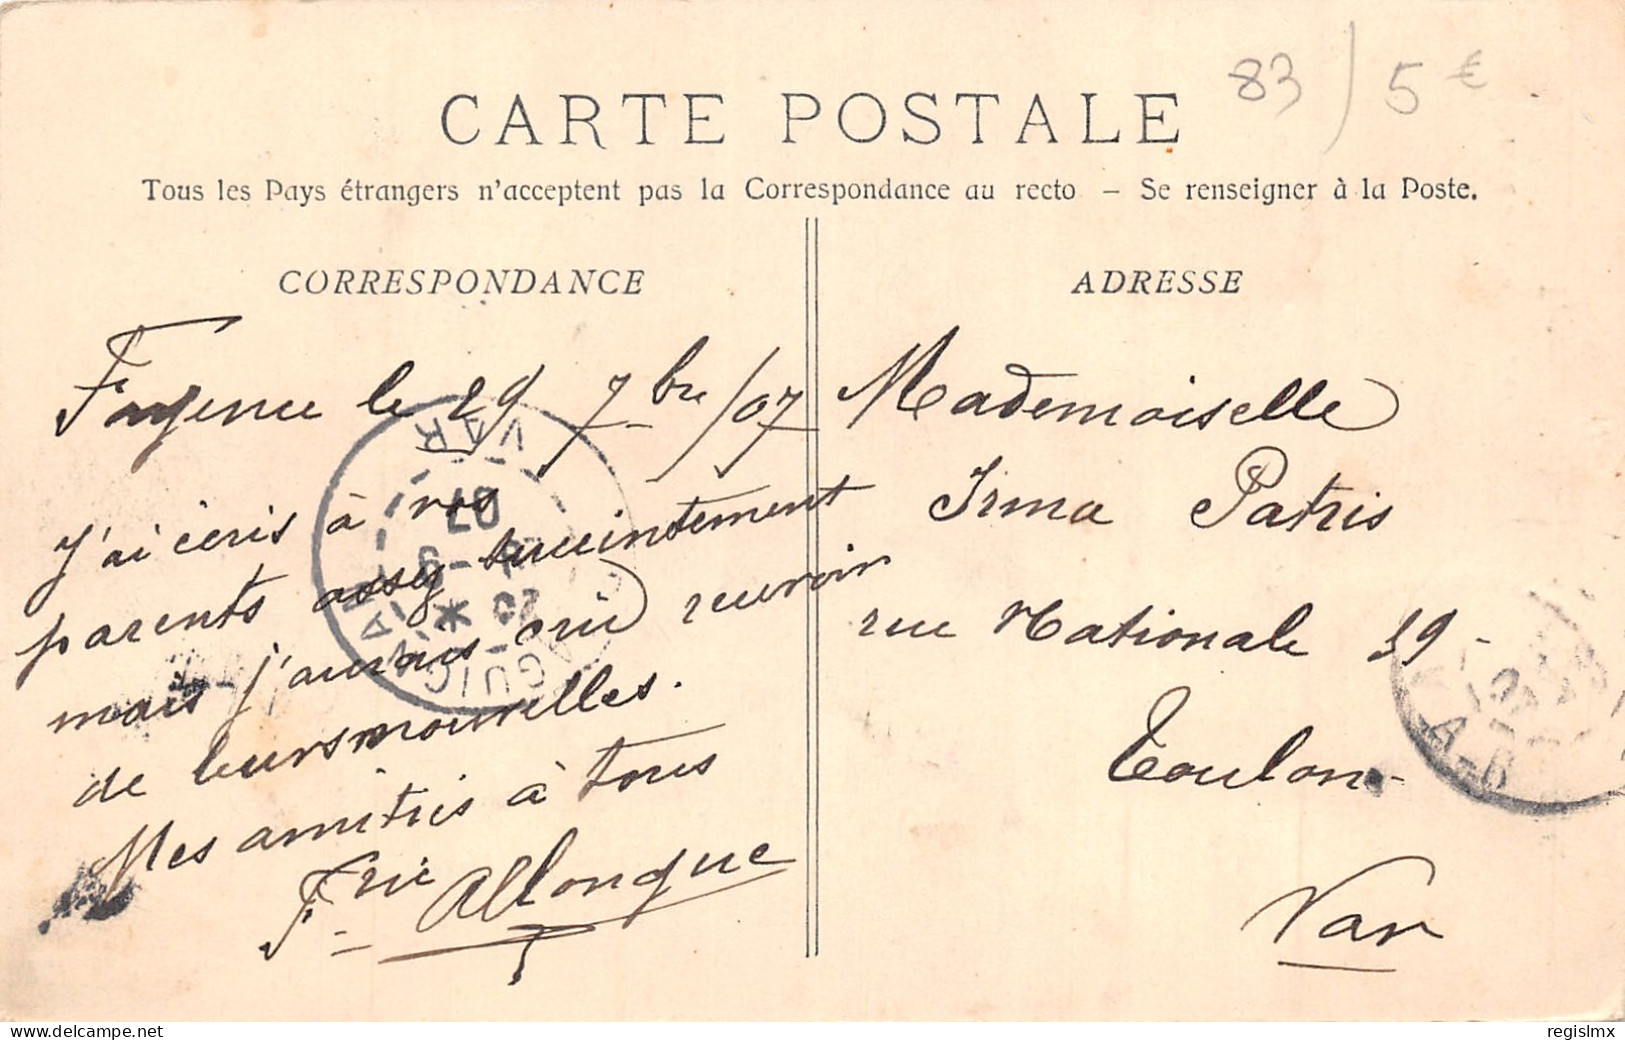 83 / 5 €
CARTE POSTALE
Tous les Pays étrangers n'acceptent pas la Correspondance au recto – Se renseigner à la Poste.
CORRESPONDANCE
le 29 7bre/07
J'ai écris à vos
parents assez succintement
mais j'aurais cru recevoir
de leurs nouvelles.
Mes amitiés à tous
Allongue
ADRESSE
Mademoiselle
Irma Patris
rue Nationale 59-
Toulon-
Var
VAR
07
-9
20
regislmx